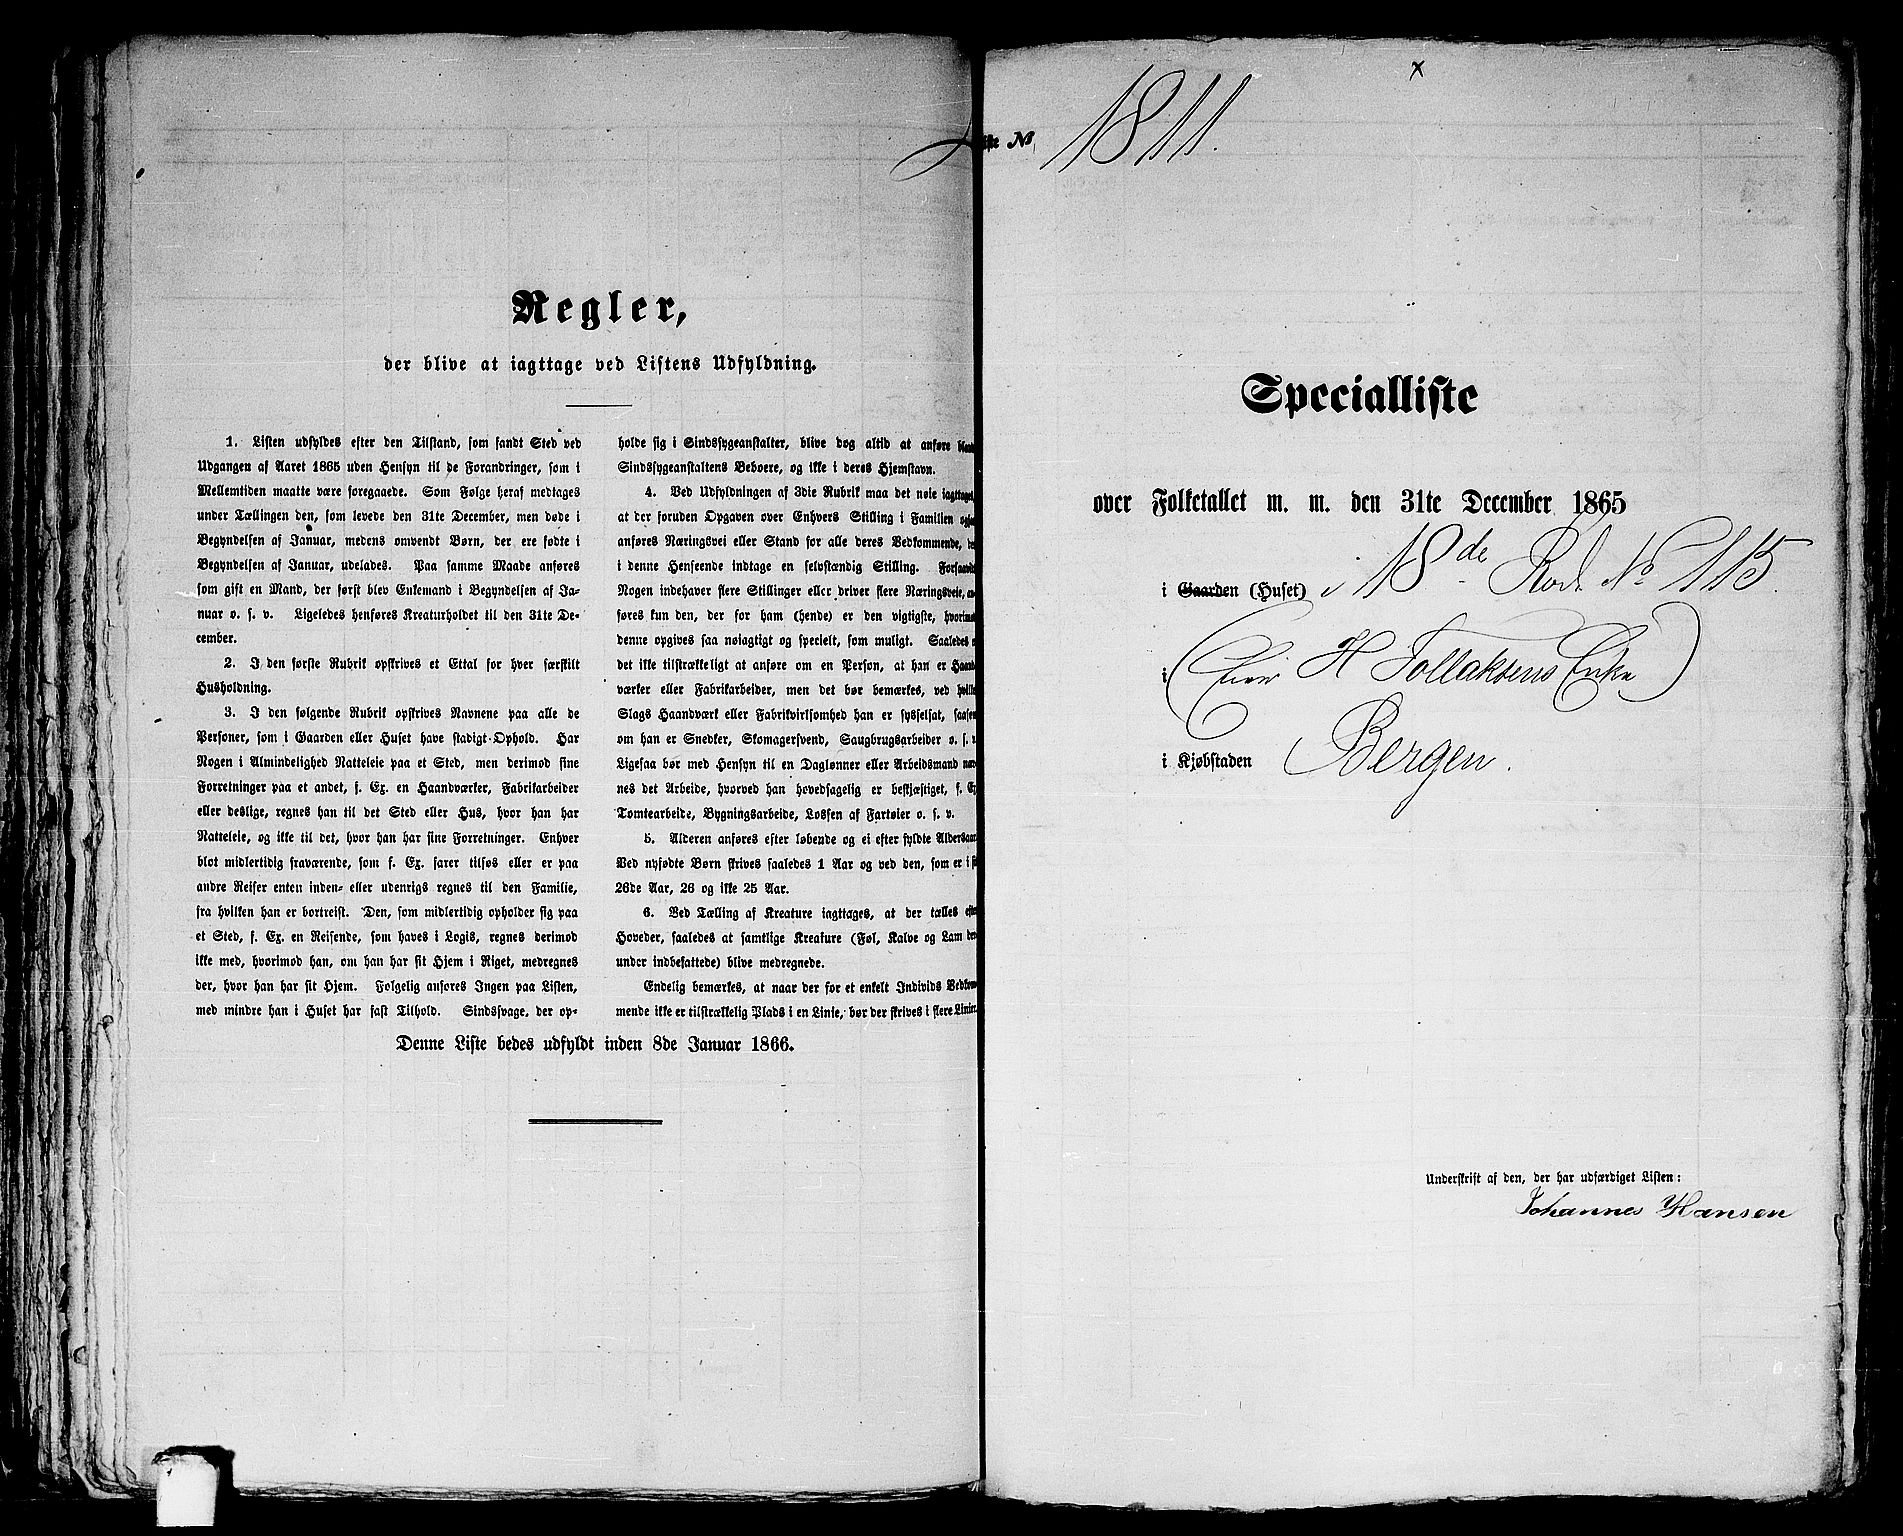 Regler,
der blive at iagttage ved Listens Udfyldning.
1. Listen udfyldes efter den Tilstand, som fandt Sted ved
Udgangen af Aaret 1865 uden Hensyn til de Forandringer, som i
Mellemtiden maatte være foregaaede. Som Følge heraf medtages
under Tællingen den, som levede den 31te December, men døde i
Begyndelsen af Januar, medens omvendt Børn, der ere fødte i
Begyndelsen af Januar, udelades. Paa samme Maade anføres
som gift en Mand, der først blev Enkemand i Begyndelsen af Ja-
nuar o. s. v. Ligeledes henføres Kreaturholdet til den 31te De-
cember.
2. I den første Rubrik opskrives et Ettal for hver særskilt
Husholdning.
3. I den følgende Rubrik opskrives Navnene paa alle de
Personer, som i Gaarden eller Huset have stadigt Ophold. Har
Nogen i Almindelighed Natteleie paa et Sted, men derimod sine
Forretninger paa et andet, f. Ex. en Haandværker, Fabrikarbeider
eller deslige, regnes han til det Sted eller Hus, hvor han har
Natteleie, og ikke til det, hvor han har sine Forretninger. Enhver
blot midlertidig fraværende, som f. Ex. farer tilsøs eller er paa
andre Reiser enten inden- eller udenrigs regnes til den Familie,
fra hvilken han er bortreist. Den, som midlertidig opholder sig paa
et Sted, f. Ex. en Reisende, som haves i Logis, regnes derimod
ikke med, hvorimod han, om han har sit Hjem i Riget, medregnes
der, hvor han har sit Hjem. Følgelig anføres Ingen paa Listen,
med mindre han i Huset har fast Tilhold. Sindssvage, der op-
holde sig i Sindssygeanstalter, blive dog altid at anføre blandt
Sindssygeanstaltens Beboere, og ikke i deres Hjemstavn.
4. Ved Udfyldningen af 3die Rubrik maa det nøie iagttages,
at der foruden Opgaven over Enhvers Stilling i Familien og
anføres Næringsvei eller Stand for alle deres Vedkommende, de
i denne Henseende indtage en selvstændig Stilling. Forsaavidt
Nogen indehaver flere Stillinger eller driver flere Næringsveie, an
føres kun den, der for ham (hende) er den vigtigste, hvorimod
denne opgives saa nøiagtigt og specielt, som muligt. Saaledes
det ikke tilstrækkeligt at anføre om en Person, at han er Haand
værker eller Fabrikarbeider, men det bør bemærkes, ved hvilke
Slags Haandværk eller Fabrikvirksomhed han er sysselsat, saasom
om han er Snedker, Skomagersvend, Saugbrugsarbeider o. s. v.
Ligesaa bør med Hensyn til en Daglønner eller Arbeidsmand næv
nes det Arbeide, hvorved han hovedsagelig er beskjæftiget, f. Ex
Tomtearbeide, Bygningsarbeide, Lossen af Fartøier o. s. v.
5. Alderen anføres efter løbende og ei efter fyldte Aldersaar.
Ved nyfødte Børn skrives saaledes 1 Aar og ved den, som er i sit
26de Aar, 26 og ikke 25 Aar.
6. Ved Tælling af Kreature iagttages, at der tælles efter
Hoveder, saaledes at samtlige Kreature (Føl, Kalve og Lam der
under indbefattede) blive medregnede.
Endelig bemærkes, at naar der for et enkelt Individs Vedkom
mende ikke er tilstrækkelig Plads i en Linie, bør der skrives i flere Linier.
Denne Liste bedes udfyldt inden 8de Januar 1866.
x
iste No 1811.
Specialliste
over Folketallet m. m. den 31te December 1865
i Gaarden (Huset) i 18de Rode No 115.
i (Eier H Tollaksens Enke)
i Kjøbstaden Bergen.
Underskrift af den, der har udfærdiget Listen:
Johannes Hansen